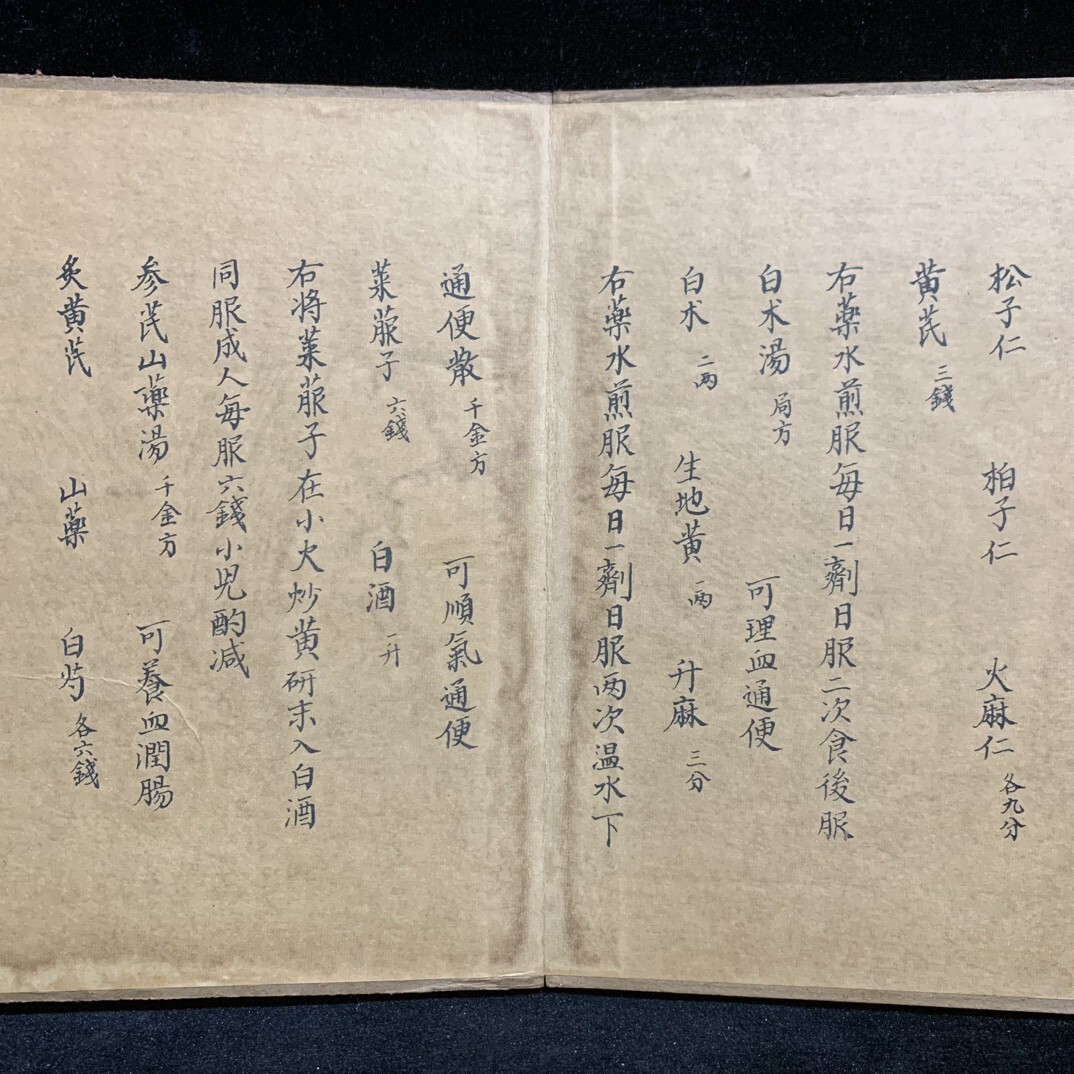 松子仁 柏子仁 火麻仁 各九分
黄芪 三錢
右藥水煎服每日一劑日服二次食後服
白术湯 局方 可理血通便
白术 二两 生地黄 一两 升麻 三分
右藥水煎服每日一劑日服两次温水下
通便散 千金方 可順氣通便
菜菔子 六錢 白酒 一升
右将菜菔子在小火炒黄研末入白酒
同服成人每服六錢小児酌减
参芪山藥湯 千金方 可養血潤腸
炙黄芪 山藥 白芍 各六錢